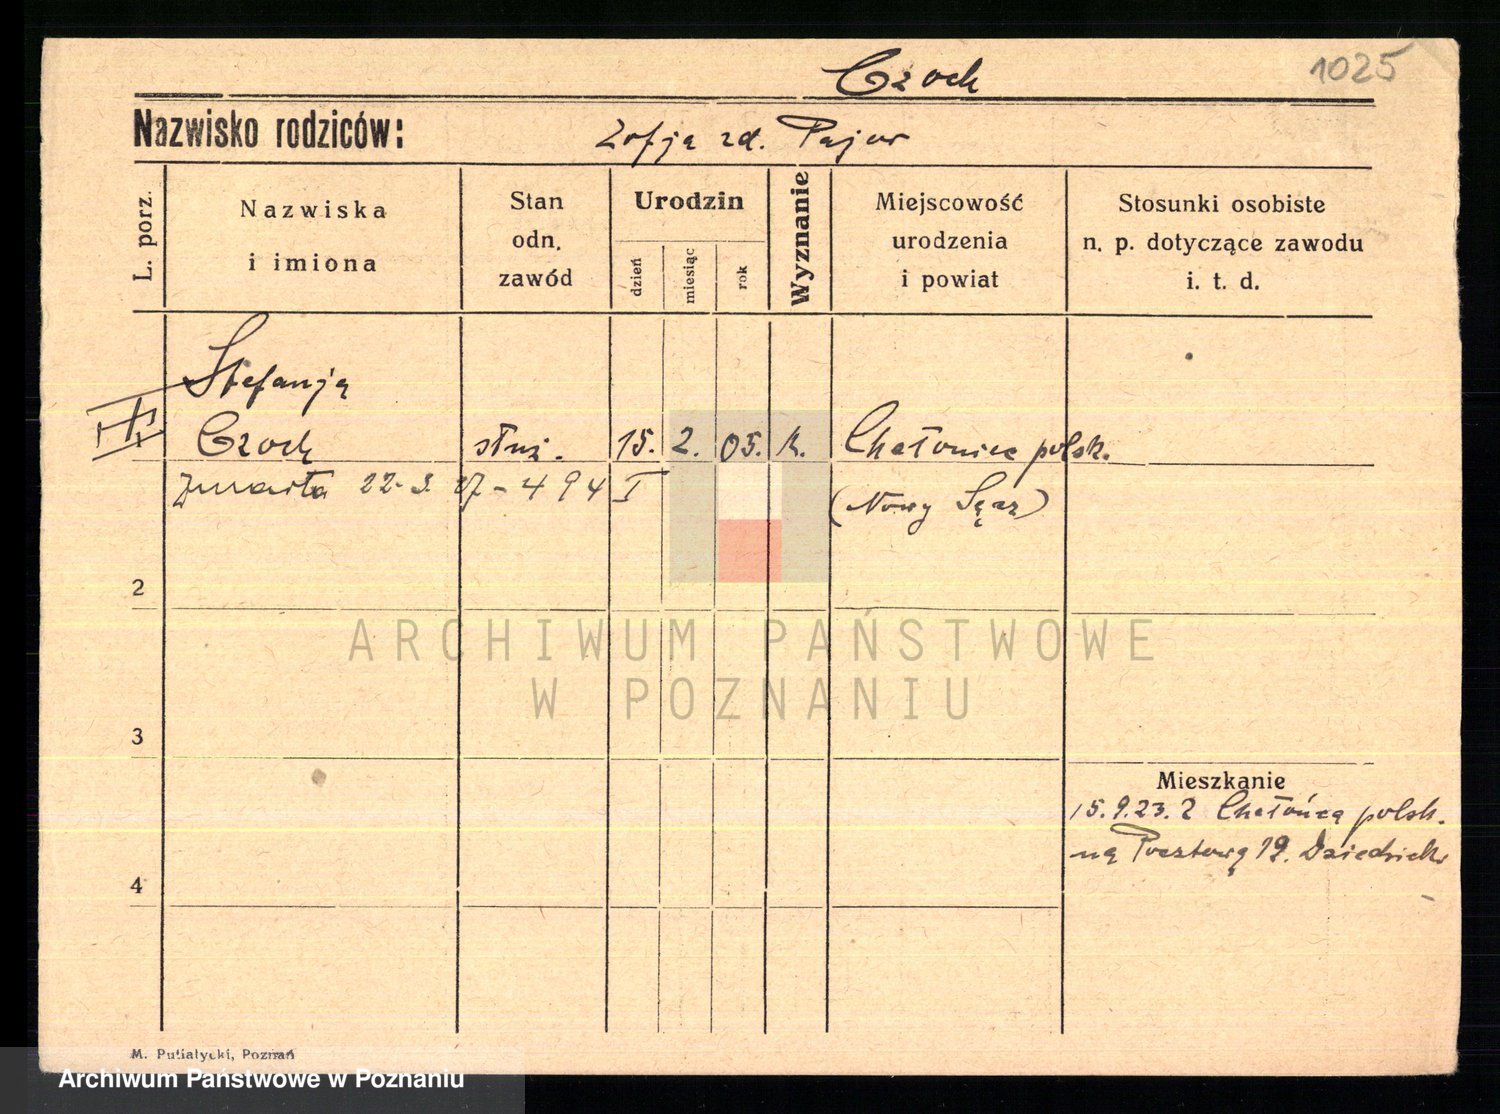 Czoch
1025
Nazwisko rodziców:
Zofja zd. Pajor
L. porz.
Nazwiska
i imiona
Stan
odn.
zawód
Urodzin
dzień
miesiąc
rok
Wyznanie
Miejscowość
urodzenia
i powiat
Stosunki osobiste
n. p. dotyczące zawodu
i. t. d.
Stefanja
Czoch
służ.
15. 2. 05. k.
Chełoniec polsk.
Zmarła 22-3 27 - 494 I
(Nowy Sącz)
2
ARCHIWUM PAŃSTWOWE
W POZNANIU
3
Mieszkanie
15.9.23. z polsk.
na Pocztową 19.
4
M. Putiatycki, Poznań
Archiwum Państwowe w Poznaniu